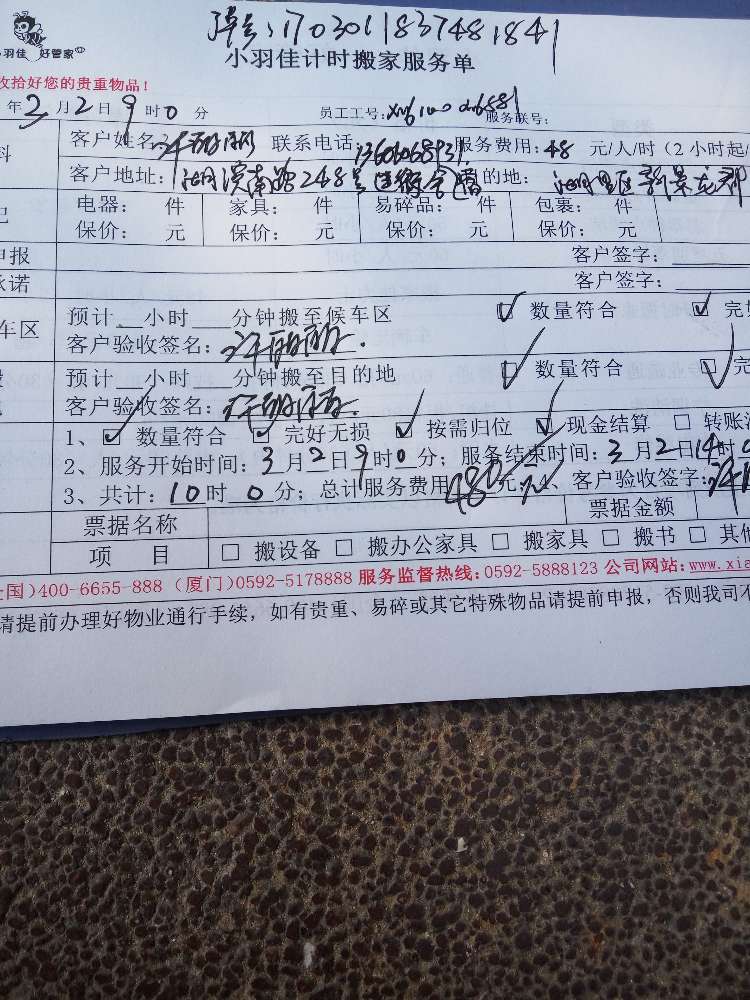 单号:1703011837481841
小羽佳 好管家
小羽佳计时搬家服务单
收拾好您的贵重物品!
年3月2日9时0分 员工工号: 服务联号:
客户姓名: 联系电话: 服务费用:48 元/人/时(2小时起/
客户地址: 湖滨南路248号 目的地: 湖里区
电器: 件 家具: 件 易碎品: 件 包裹: 件
保价: 元 保价: 元 保价: 元 保价: 元
申报 客户签字:
承诺 客户签字:
车区 预计 小时 分钟搬至候车区 ☑ 数量符合 ☑ 完
客户验收签名:
预计 小时 分钟搬至目的地 ☑ 数量符合 ☑ 完
客户验收签名:
1、☑ 数量符合 ☑ 完好无损 ☑ 按需归位 ☑ 现金结算 □ 转账
2、服务开始时间:3月2日9时0分;服务结束时间:3月2日14时
3、共计:10时0分;总计服务费用480元 、客户验收签字:
票据名称 票据金额
项 目 □ 搬设备 □ 搬办公家具 □ 搬家具 □ 搬书 □ 其他
全国)400-6655-888 (厦门)0592-5178888 服务监督热线:0592-5888123 公司网站:www.xia
请提前办理好物业通行手续,如有贵重、易碎或其它特殊物品请提前申报,否则我司不